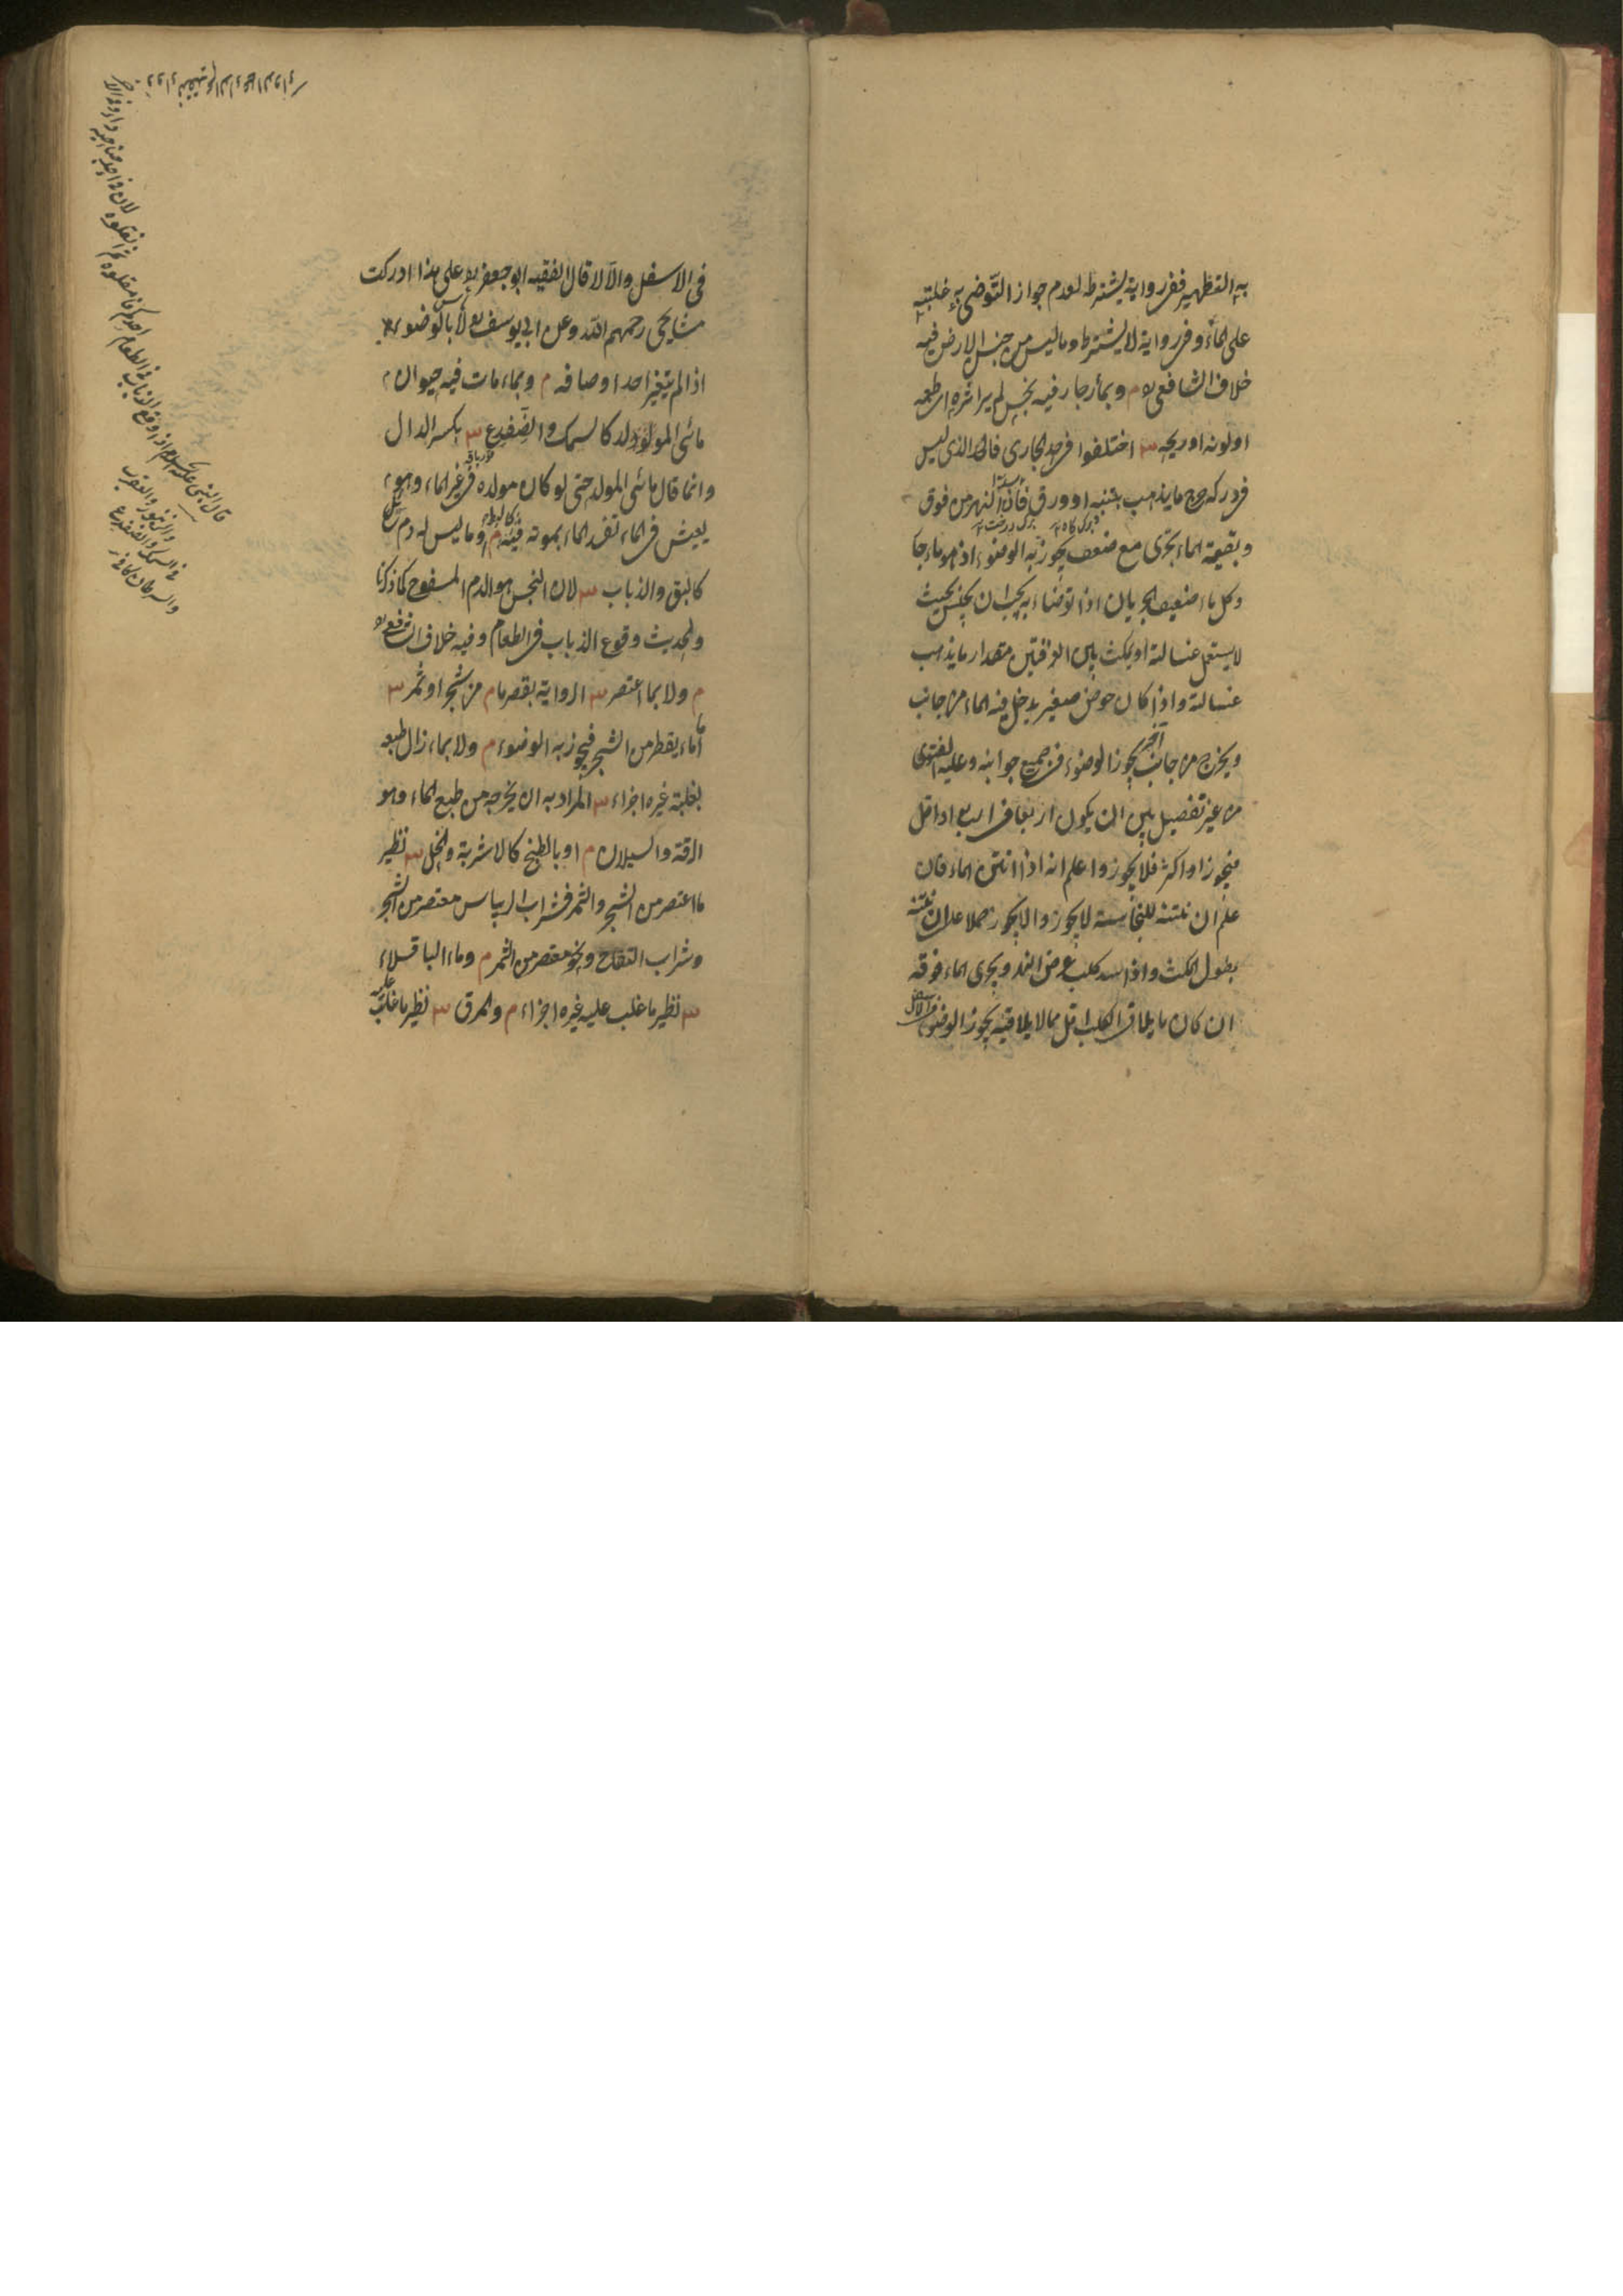 به التطهير ففى رواية يشترط لعدم جواز التوضى به غلبته
على الماء وفى رواية لا يشترط وما ليس من جنس الارض فيه
خلاف الشافعى م وبماء جار فيه نجس لم ير اثره اى طعمه
او لونه او ريحه س اختلفوا فى حد الجارى فالحد الذى ليس
فى دركه حرج ما يذهب بتبنه او ورق فاذا سد النهر من فوق
وبقية الماء يجرى مع ضعف يجوز به الوضوء اذ هو ماء جار
وكل ماء ضعيف الجريان اذا توضأ به يجب ان يجلس بحيث
لا يستعمل غسالته او يمكث بين الغرفتين مقدار ما يذهب
غسالته واذا كان حوض صغير يدخل فيه الماء من جانب
ويخرج من جانب آخر يجوز الوضوء فى جميع جوانبه وعليه الفتوى
من غير تفصيل بين ان يكون اربعا فى اربع او اقل
فيجوز او اكثر فلا يجوز واعلم انه اذا انتن الماء فان
علم ان نتنه للنجاسة لا يجوز والا يجوز حملا على ان نتنه
بطول المكث واذا سد كلب عرض النهر ويجرى الماء فوقه
ان كان ما يلاقى الكلب اقل مما لا يلاقيه يجوز الوضوء
فى الاسفل والا لا قال الفقيه ابو جعفر على هذا ادركت
مشايخى رحمهم الله وعن ابى يوسف لا بأس بالوضوء به
اذا لم يتغير احد اوصافه م وبماء مات فيه حيوان
مائى المولد كالسمك والضفدع س بكسر الدال
وانما قال مائى المولد حتى لو كان مولده فى غير الماء وهو
يعيش فى الماء تفسد الماء بموته فيه م وما ليس له دم سائل
كالبق والذباب س لان النجس هو الدم المسفوح كما ذكرنا
ولحديث وقوع الذباب فى الطعام وفيه خلاف الشافعى
م ولا بما اعتصر س الرواية بقصر ما م من شجر او ثمر س
اما ماء يقطر من الشجر فيجوز به الوضوء م ولا بماء زال طبعه
بغلبة غيره اجزاء س المراد به ان يخرجه من طبع الماء وهو
الرقة والسيلان م او بالطبخ كالاشربة والخل س نظير
ما اعتصر من الشجر والثمر فشراب الريباس معتصر من الشجر
وشراب التفاح ونحوه معتصر من الثمر م وماء الباقلاء
س نظير ما غلب عليه غيره اجزاء م والمرق س نظير ما غلب عليه
قال النبى عليه السلام اذا وقع الذباب فى الطعام احدكم فامقلوه ثم انقلوه لان فى احد جناحيه داء وفى الآخر